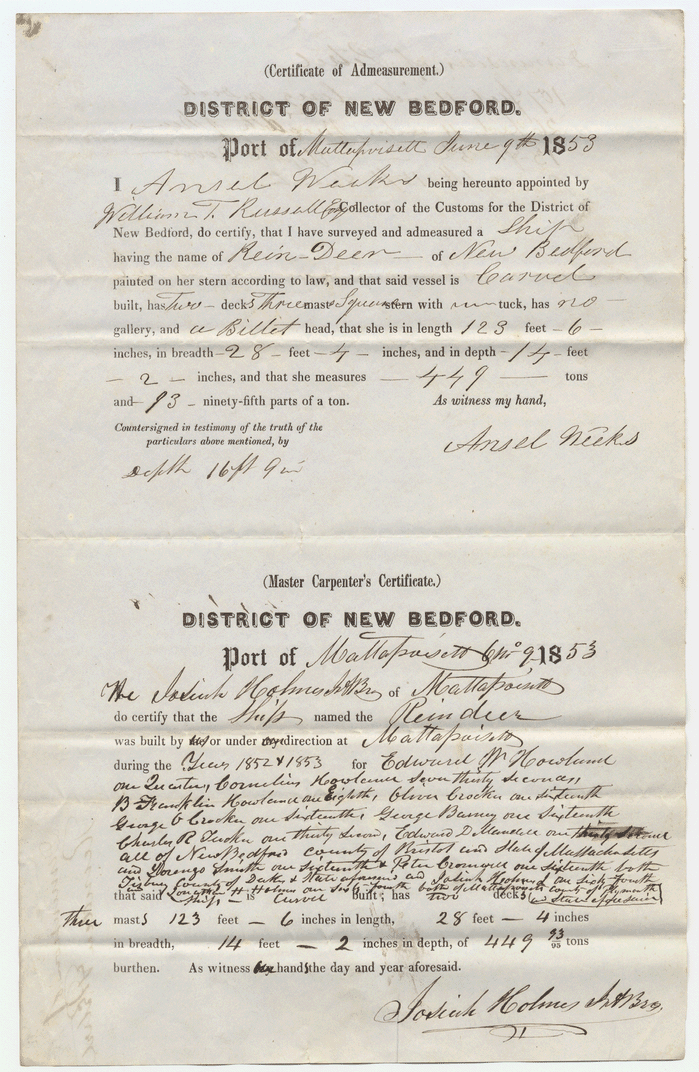 (Certificate of Admeasurement.)
DISTRICT OF NEW BEDFORD.
Port of Mattapoisett June 9th 1853
I Ansel Weeks being hereunto appointed by
William T. Russell Esq Collector of the Customs for the District of
New Bedford, do certify, that I have surveyed and admeasured a Ship
having the name of Rein-Deer — of New Bedford
painted on her stern according to law, and that said vessel is Carvel
built, has Two — decks Three masts Square stern with no tuck, has no —
gallery, and a Billet head, that she is in length 123 feet — 6 —
inches, in breadth — 28 — feet — 4 — inches, and in depth — 14 — feet
— 2 — inches, and that she measures — 449 — tons
and — 93 — ninety-fifth parts of a ton. As witness my hand,
Countersigned in testimony of the truth of the
particulars above mentioned, by
Ansel Weeks
Depth 16ft 9in
(Master Carpenter's Certificate.)
DISTRICT OF NEW BEDFORD.
Port of Mattapoisett 6mo 9 1853
We Josiah Holmes Jr & Bro of Mattapoisett
do certify that the Ship named the Reindeer
was built by us or under our direction at Mattapoisett
during the Years 1852 & 1853 for Edward W Howland
one Quarter, Cornelius Howland Seven thirty seconds,
B Franklin Howland one Eighth, Oliver Crocker one sixteenth
George O Crocker one sixteenth, George Barney one sixteenth
Charles R Tucker one thirty second, Edward D Mandell one thirty second
all of New Bedford county of Bristol and State of Massachusetts
and Lorenzo Smith one sixteenth & Peter Cromwell one sixteenth both
Tisbury County of Dukes & State aforesaid and Josiah Holmes one sixty fourth
that said Jonathan H Holmes one sixty fourth both of Mattapoisett county of Plymouth
Ship — is Carvel built; has two decks & State aforesaid
three masts 123 feet — 6 inches in length, 28 feet — 4 inches
in breadth, 14 feet — 2 inches in depth, of 449 93/95 tons
burthen. As witness our hands the day and year aforesaid.
Josiah Holmes Jr & Bro,